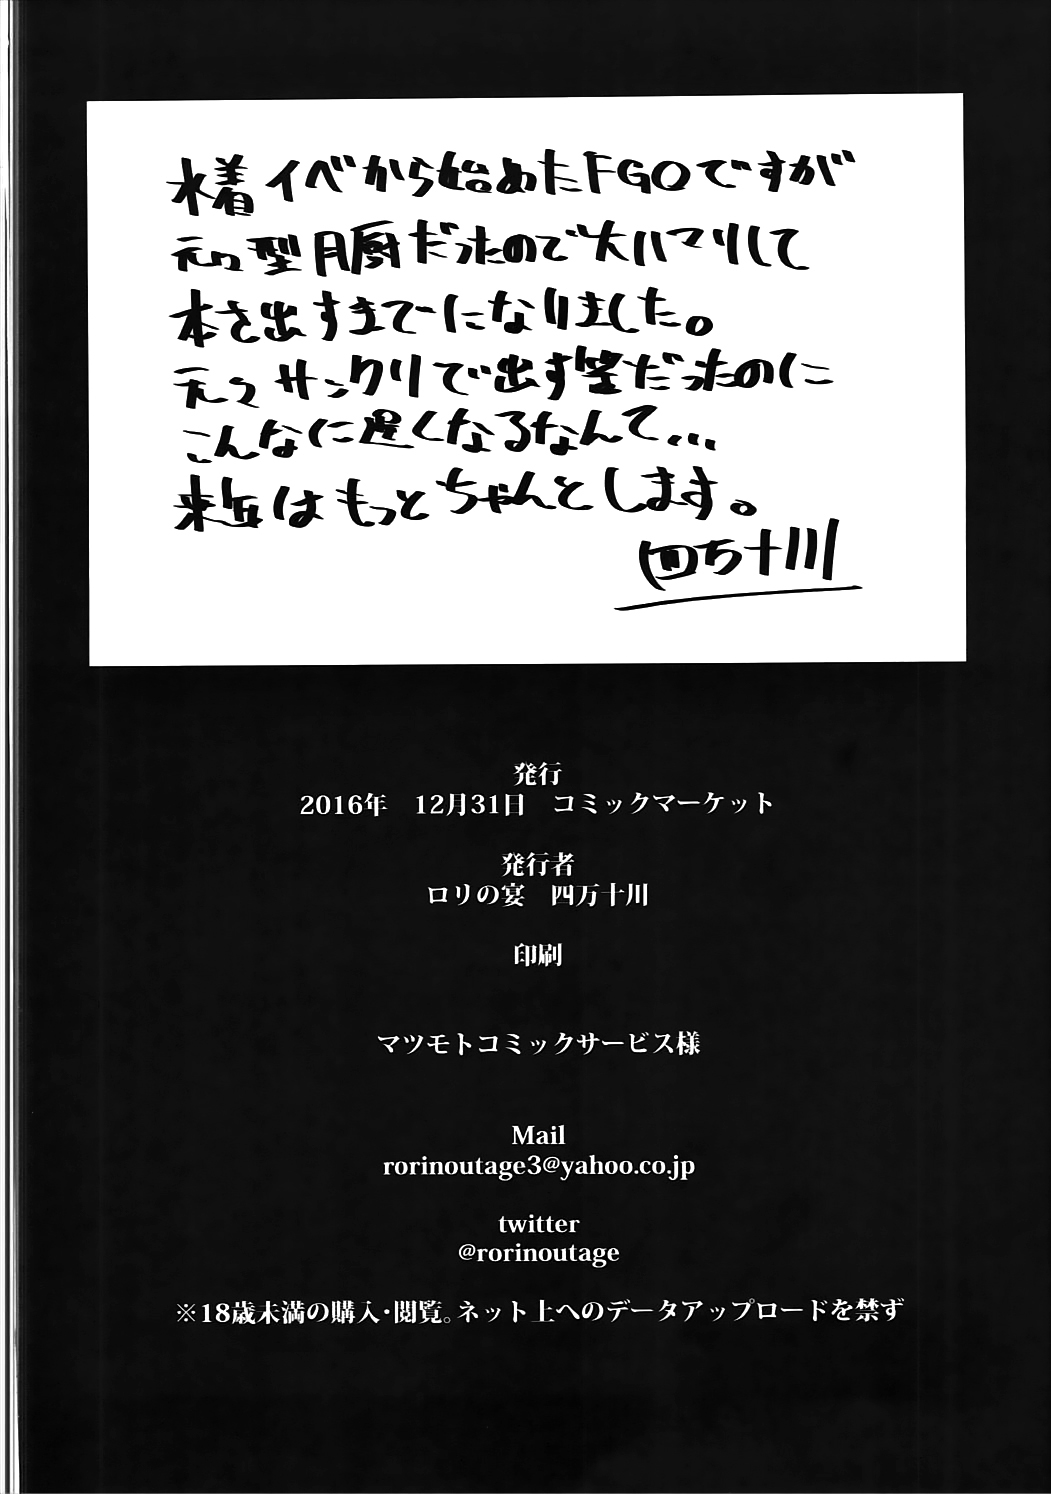 水着イベから始めたFGOですが
元々型月厨だったので大ハマりして
本を出すまでになりました。
元々サンクリで出す筈だったのに
こんなに遅くなるなんて…
来年はもっとちゃんとします。
四万十川
発行
2016年　12月31日　コミックマーケット
発行者
ロリの宴　四万十川
印刷
マツモトコミックサービス様
Mail
rorinoutage3@yahoo.co.jp
twitter
@rorinoutage
※18歳未満の購入・閲覧。ネット上へのデータアップロードを禁ず